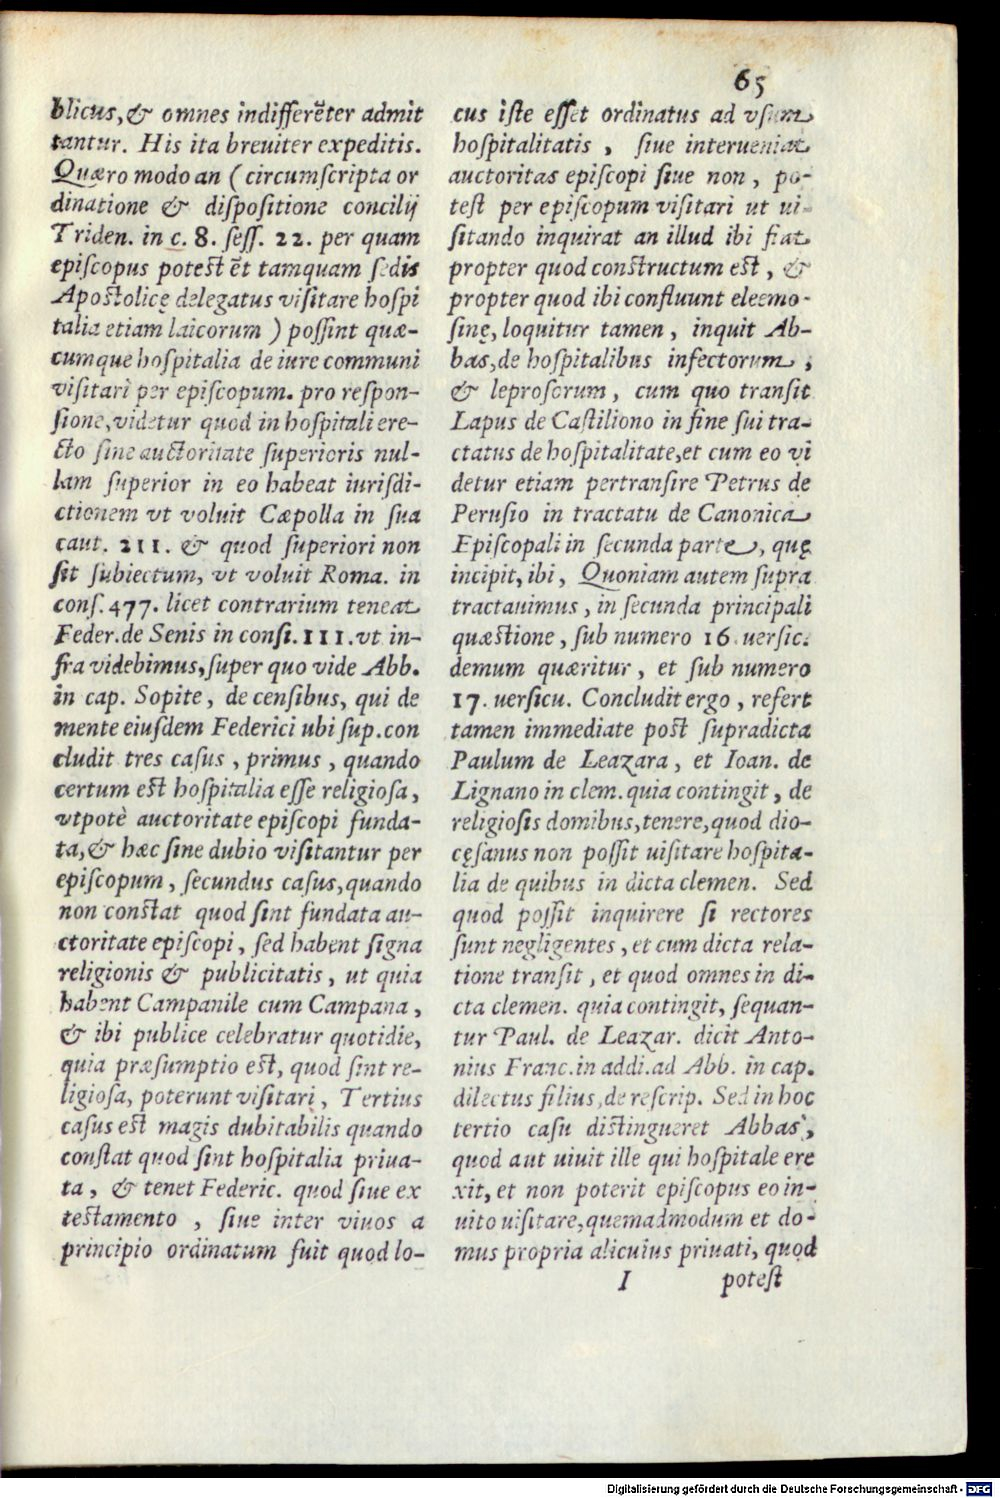 65
blicus, & omnes indifferẽter admit
tantur. His ita breuiter expeditis.
Quæro modo an (circumscripta or
dinatione & dispositione concilij
Triden. in c. 8. sess. 22. per quam
episcopus potest ẽt tamquam sedis
Apostolicę delegatus visitare hospi
talia etiam laicorum) possint quæ-
cumque hospitalia de iure communi
visitari per episcopum. pro respon-
sione, videtur quod in hospitali ere-
cto sine auctoritate superioris nul-
lam superior in eo habeat iurisdi-
ctionem vt voluit Cæpolla in sua
caut. 211. & quod superiori non
sit subiectum, vt voluit Roma. in
cons. 477. licet contrarium teneat
Feder. de Senis in consi. 111. vt in-
fra videbimus, super quo vide Abb.
in cap. Sopite, de censibus, qui de
mente eiusdem Federici ubi sup. con
cludit tres casus, primus, quando
certum est hospitalia esse religiosa,
vtpotè auctoritate episcopi funda-
ta, & hæc sine dubio visitantur per
episcopum, secundus casus, quando
non constat quod sint fundata au-
ctoritate episcopi, sed habent signa
religionis & publicitatis, ut quia
habent Campanile cum Campana,
& ibi publice celebratur quotidie,
quia præsumptio est, quod sint re-
ligiosa, poterunt visitari, Tertius
casus est magis dubitabilis quando
constat quod sint hospitalia priua-
ta, & tenet Federic. quod siue ex
testamento, siue inter viuos a
principio ordinatum fuit quod lo-
cus iste esset ordinatus ad vsum
hospitalitatis, siue interueniat
auctoritas episcopi siue non, po-
test per episcopum visitari ut ui-
sitando inquirat an illud ibi fiat
propter quod constructum est, &
propter quod ibi confluunt eleemo-
sinę, loquitur tamen, inquit Ab-
bas, de hospitalibus infectorum,
& leprosorum, cum quo transit
Lapus de Castiliono in fine sui tra-
ctatus de hospitalitate, et cum eo vi
detur etiam pertransire Petrus de
Perusio in tractatu de Canonica
Episcopali in secunda parte, quę
incipit, ibi, Quoniam autem supra
tractauimus, in secunda principali
quæstione, sub numero 16. uersic.
demum quæritur, et sub numero
17. uersicu. Concludit ergo, refert
tamen immediate post supradicta
Paulum de Leazara, et Ioan. de
Lignano in clem. quia contingit, de
religiosis domibus, tenere, quod dio-
cęsanus non possit uisitare hospita-
lia de quibus in dicta clemen. Sed
quod possit inquirere si rectores
sunt negligentes, et cum dicta rela-
tione transit, et quod omnes in di-
cta clemen. quia contingit, sequan-
tur Paul. de Leazar. dicit Anto-
nius Franc. in addi. ad Abb. in cap.
dilectus filius, de rescrip. Sed in hoc
tertio casu distingueret Abbas,
quod aut uiuit ille qui hospitale ere
xit, et non poterit episcopus eo in-
uito uisitare, quemadmodum et do-
mus propria alicuius priuati, quod
I potest
Digitalisierung gefördert durch die Deutsche Forschungsgemeinschaft - DFG